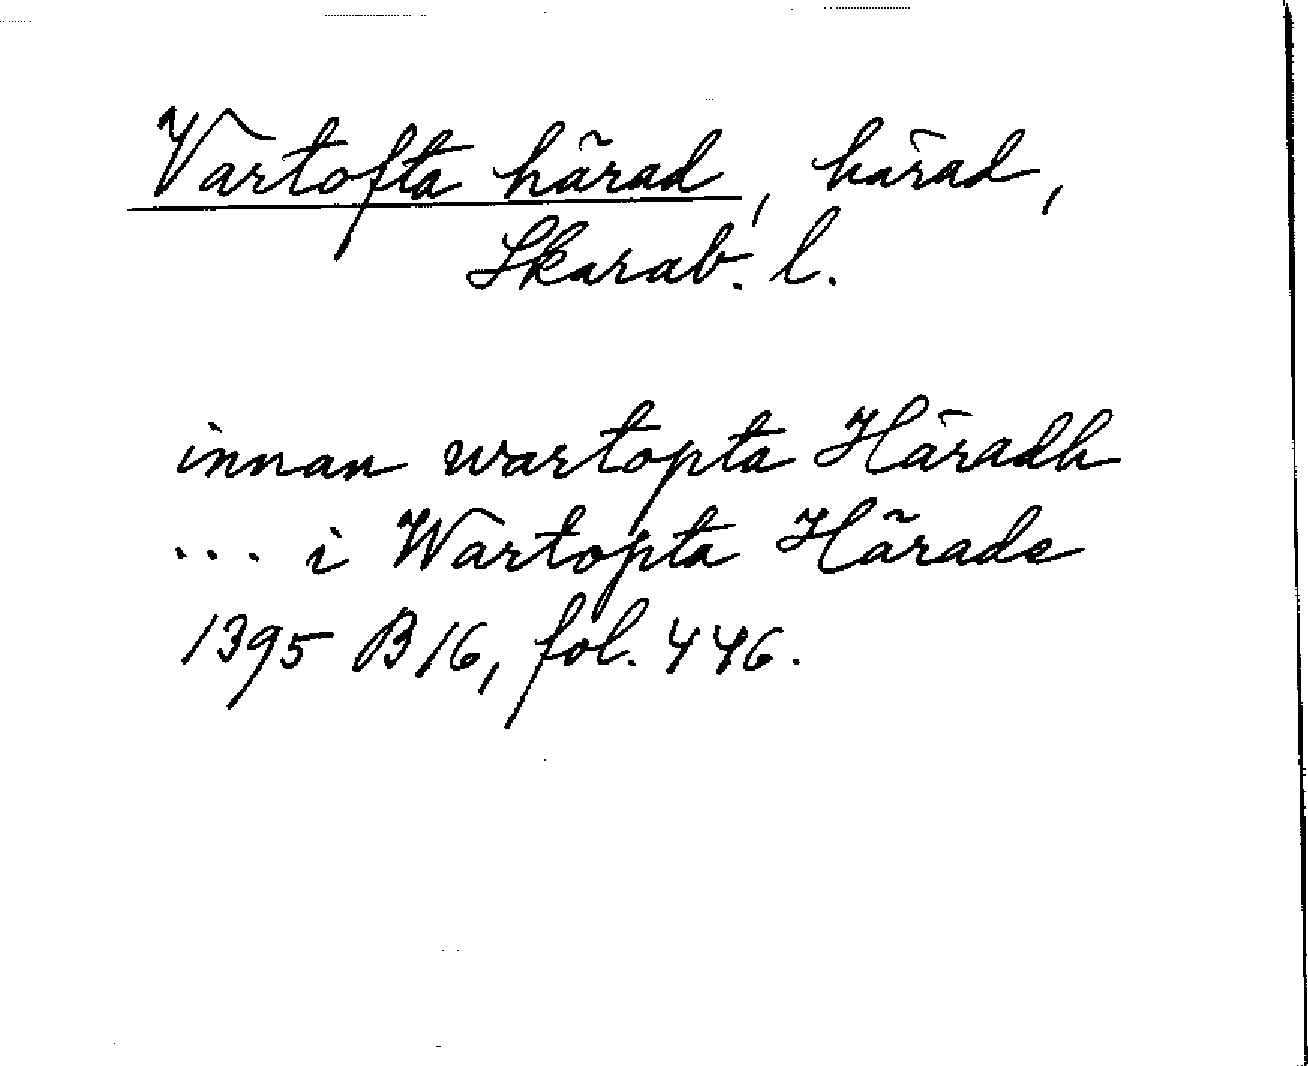 Vartofta härad, härad,
Skarab. l.
innan wartopta Häradh
... i Wartopta Härade
1395 B 16, fol. 446.